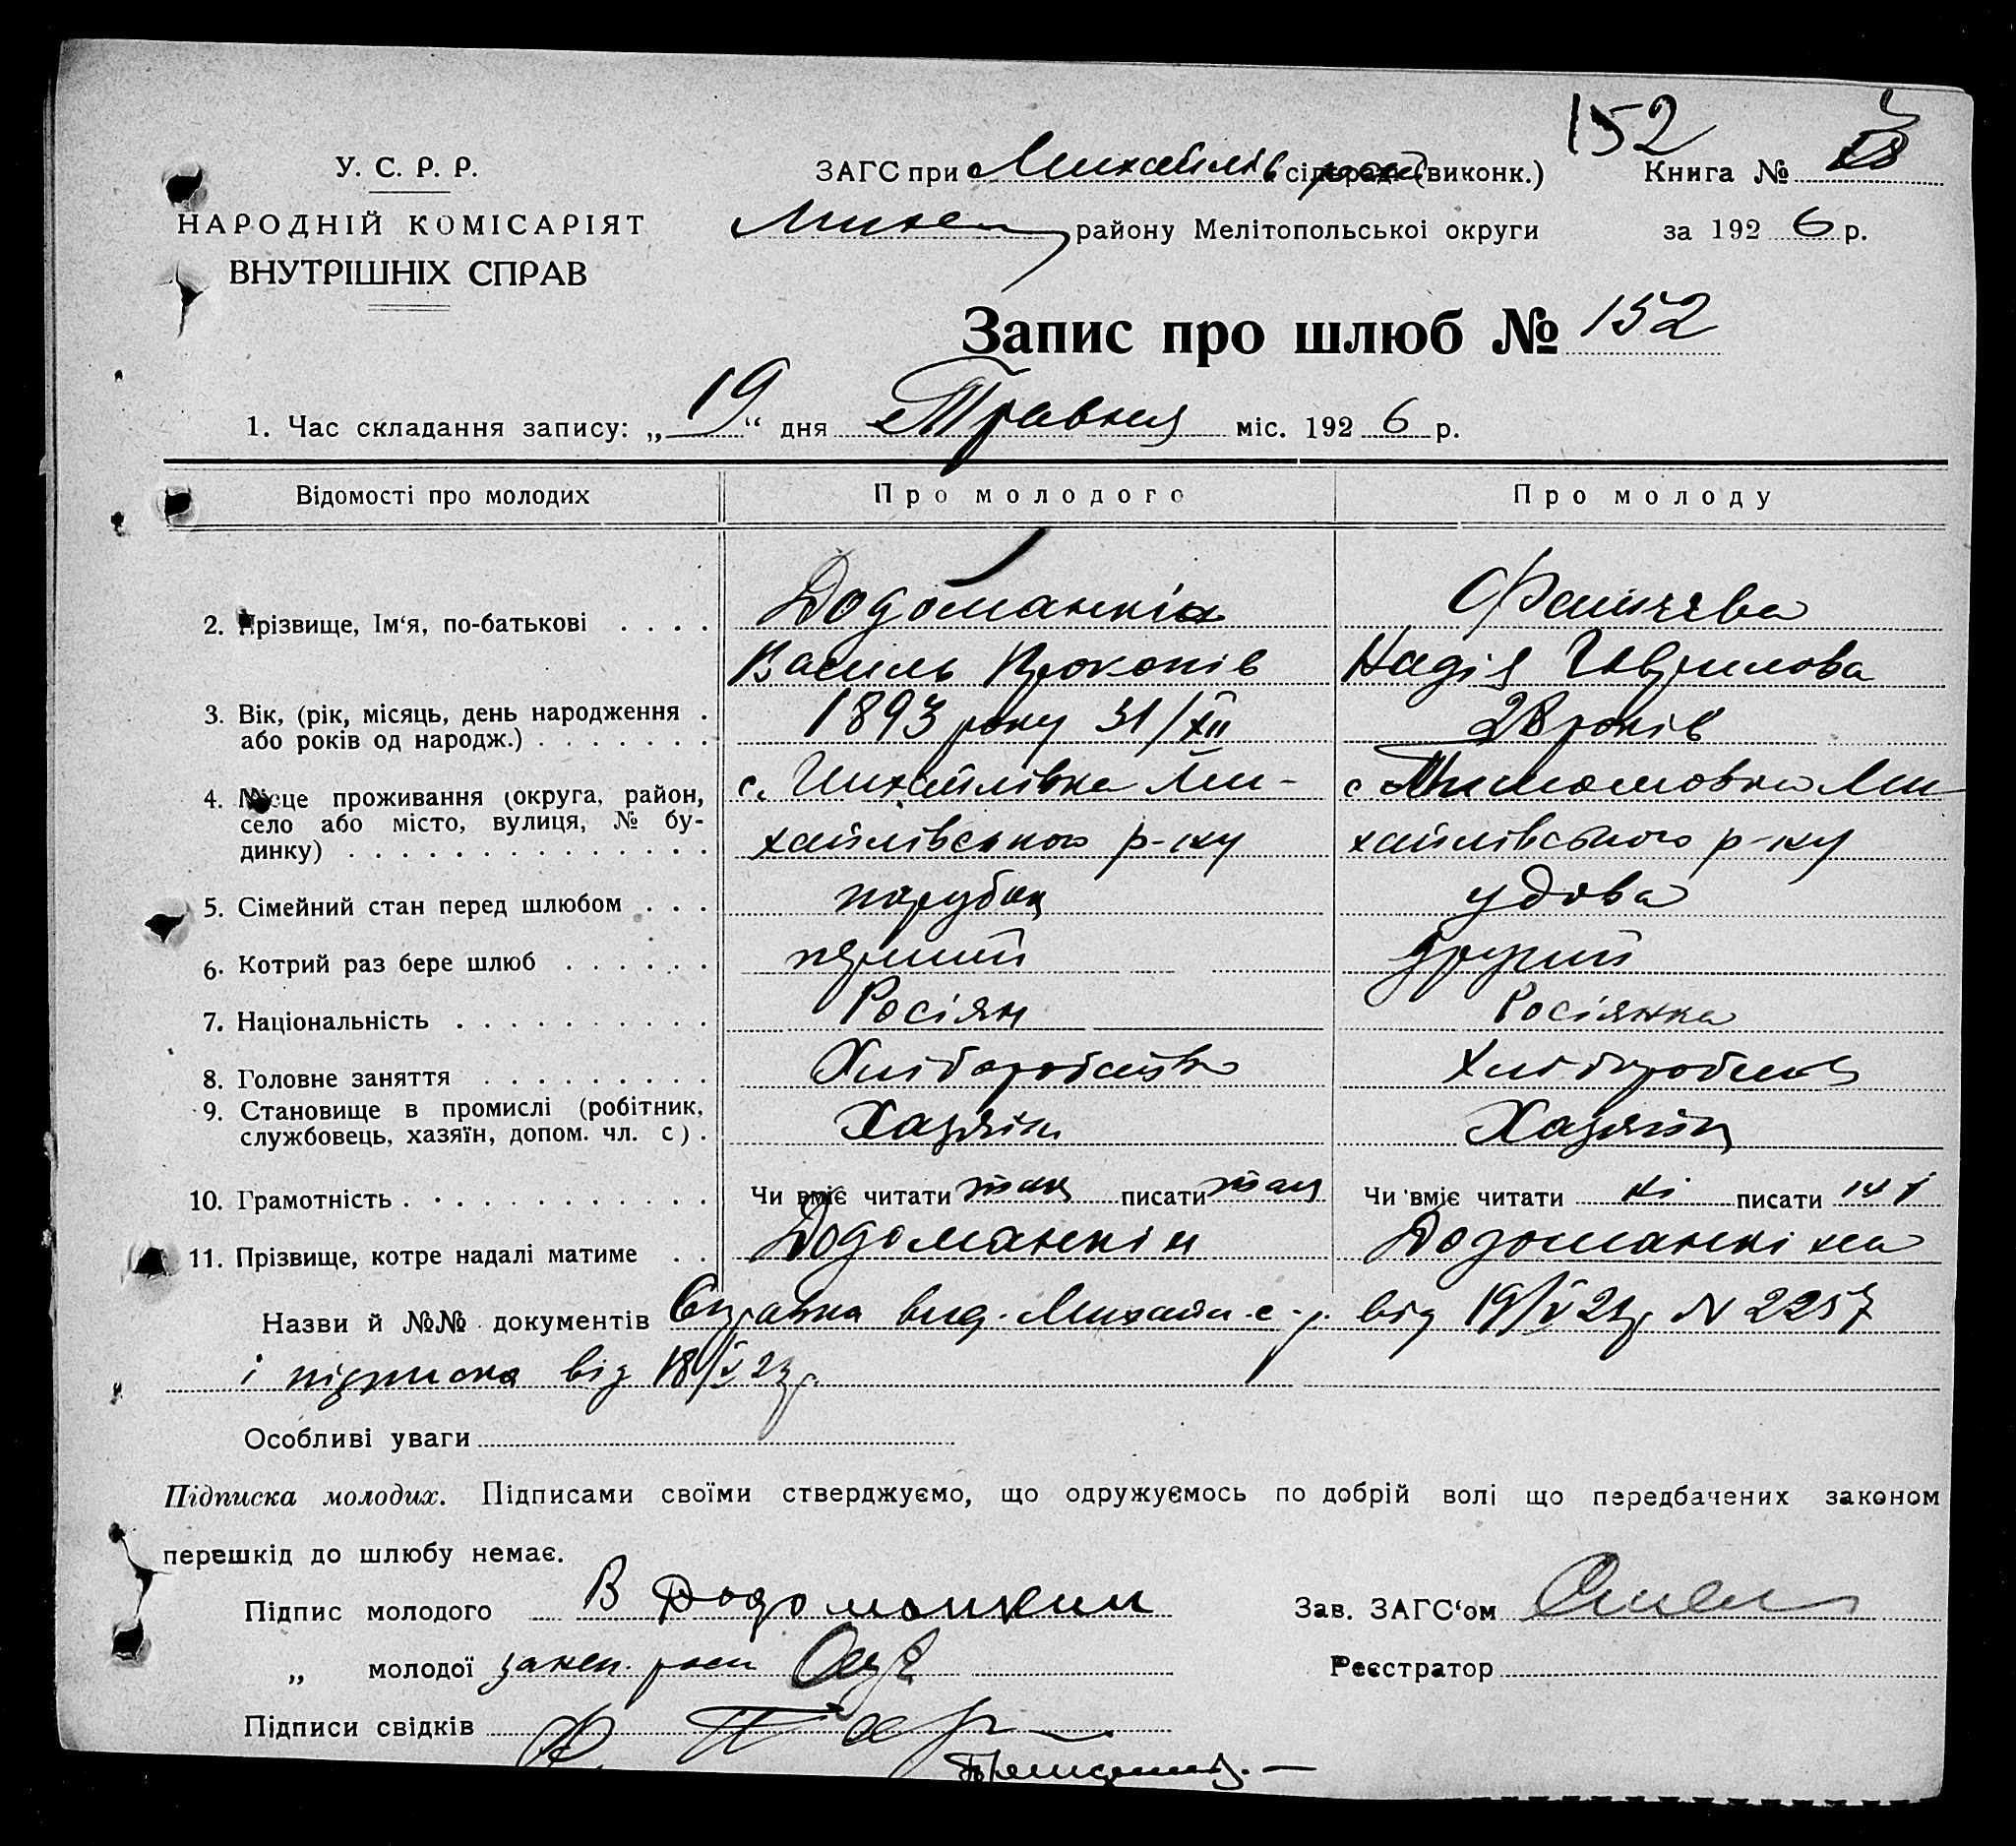 152
У. С. Р. Р.
ЗАГС при Михайлів сільраді (виконк.) Книга №
НАРОДНІЙ КОМІСАРІЯТ
району Мелітопольської округи за 1926 р.
ВНУТРІШНІХ СПРАВ
Запис про шлюб № 152
1. Час складання запису: „19“ дня Травня міс. 1926 р.
Відомості про молодих Про молодого Про молоду
2. Прізвище, Ім‘я, по-батькові . . . . Додоманкін
Василь Прокопів Надія Гаврилова
3. Вік, (рік, місяць, день народження . 1893 року 31/XII 28 років
або років од народж.) . . . . . . .
4. Місце проживання (округа, район, с. Михайлівка Ми- с Тимошовка Ми
село або місто, вулиця, № бу- хайлівського р-ну хайлівського р-ну
динку) . . . . . . . . . . . . . .
5. Сімейний стан перед шлюбом . . . парубок удова
6. Котрий раз бере шлюб . . . . . . перший другий
7. Національність . . . . . . . . . . Росіян Росіянка
8. Головне заняття . . . . . . . . . Хліборобство
9. Становище в промислі (робітник, Хазяїн
службовець, хазяїн, допом. чл. с) .
10. Грамотність . . . . . . . . . . . . Чи вміє читати так писати так Чи вміє читати ні писати ні
11. Прізвище, котре надалі матиме . . Додоманкін Додоманкіна
Назви й №№ документів Справка вид. Михайл. с-р. від 19/V 2 р. N 2257
і підписка від 18/V 2 р.
Особливі уваги
Підписка молодих. Підписами своїми стверджуємо, що одружуємось по добрій волі що передбачених законом
перешкід до шлюбу немає.
Підпис молодого В Додоманкин Зав. ЗАГС‘ом
„ молодої Реєстратор
Підписи свідків